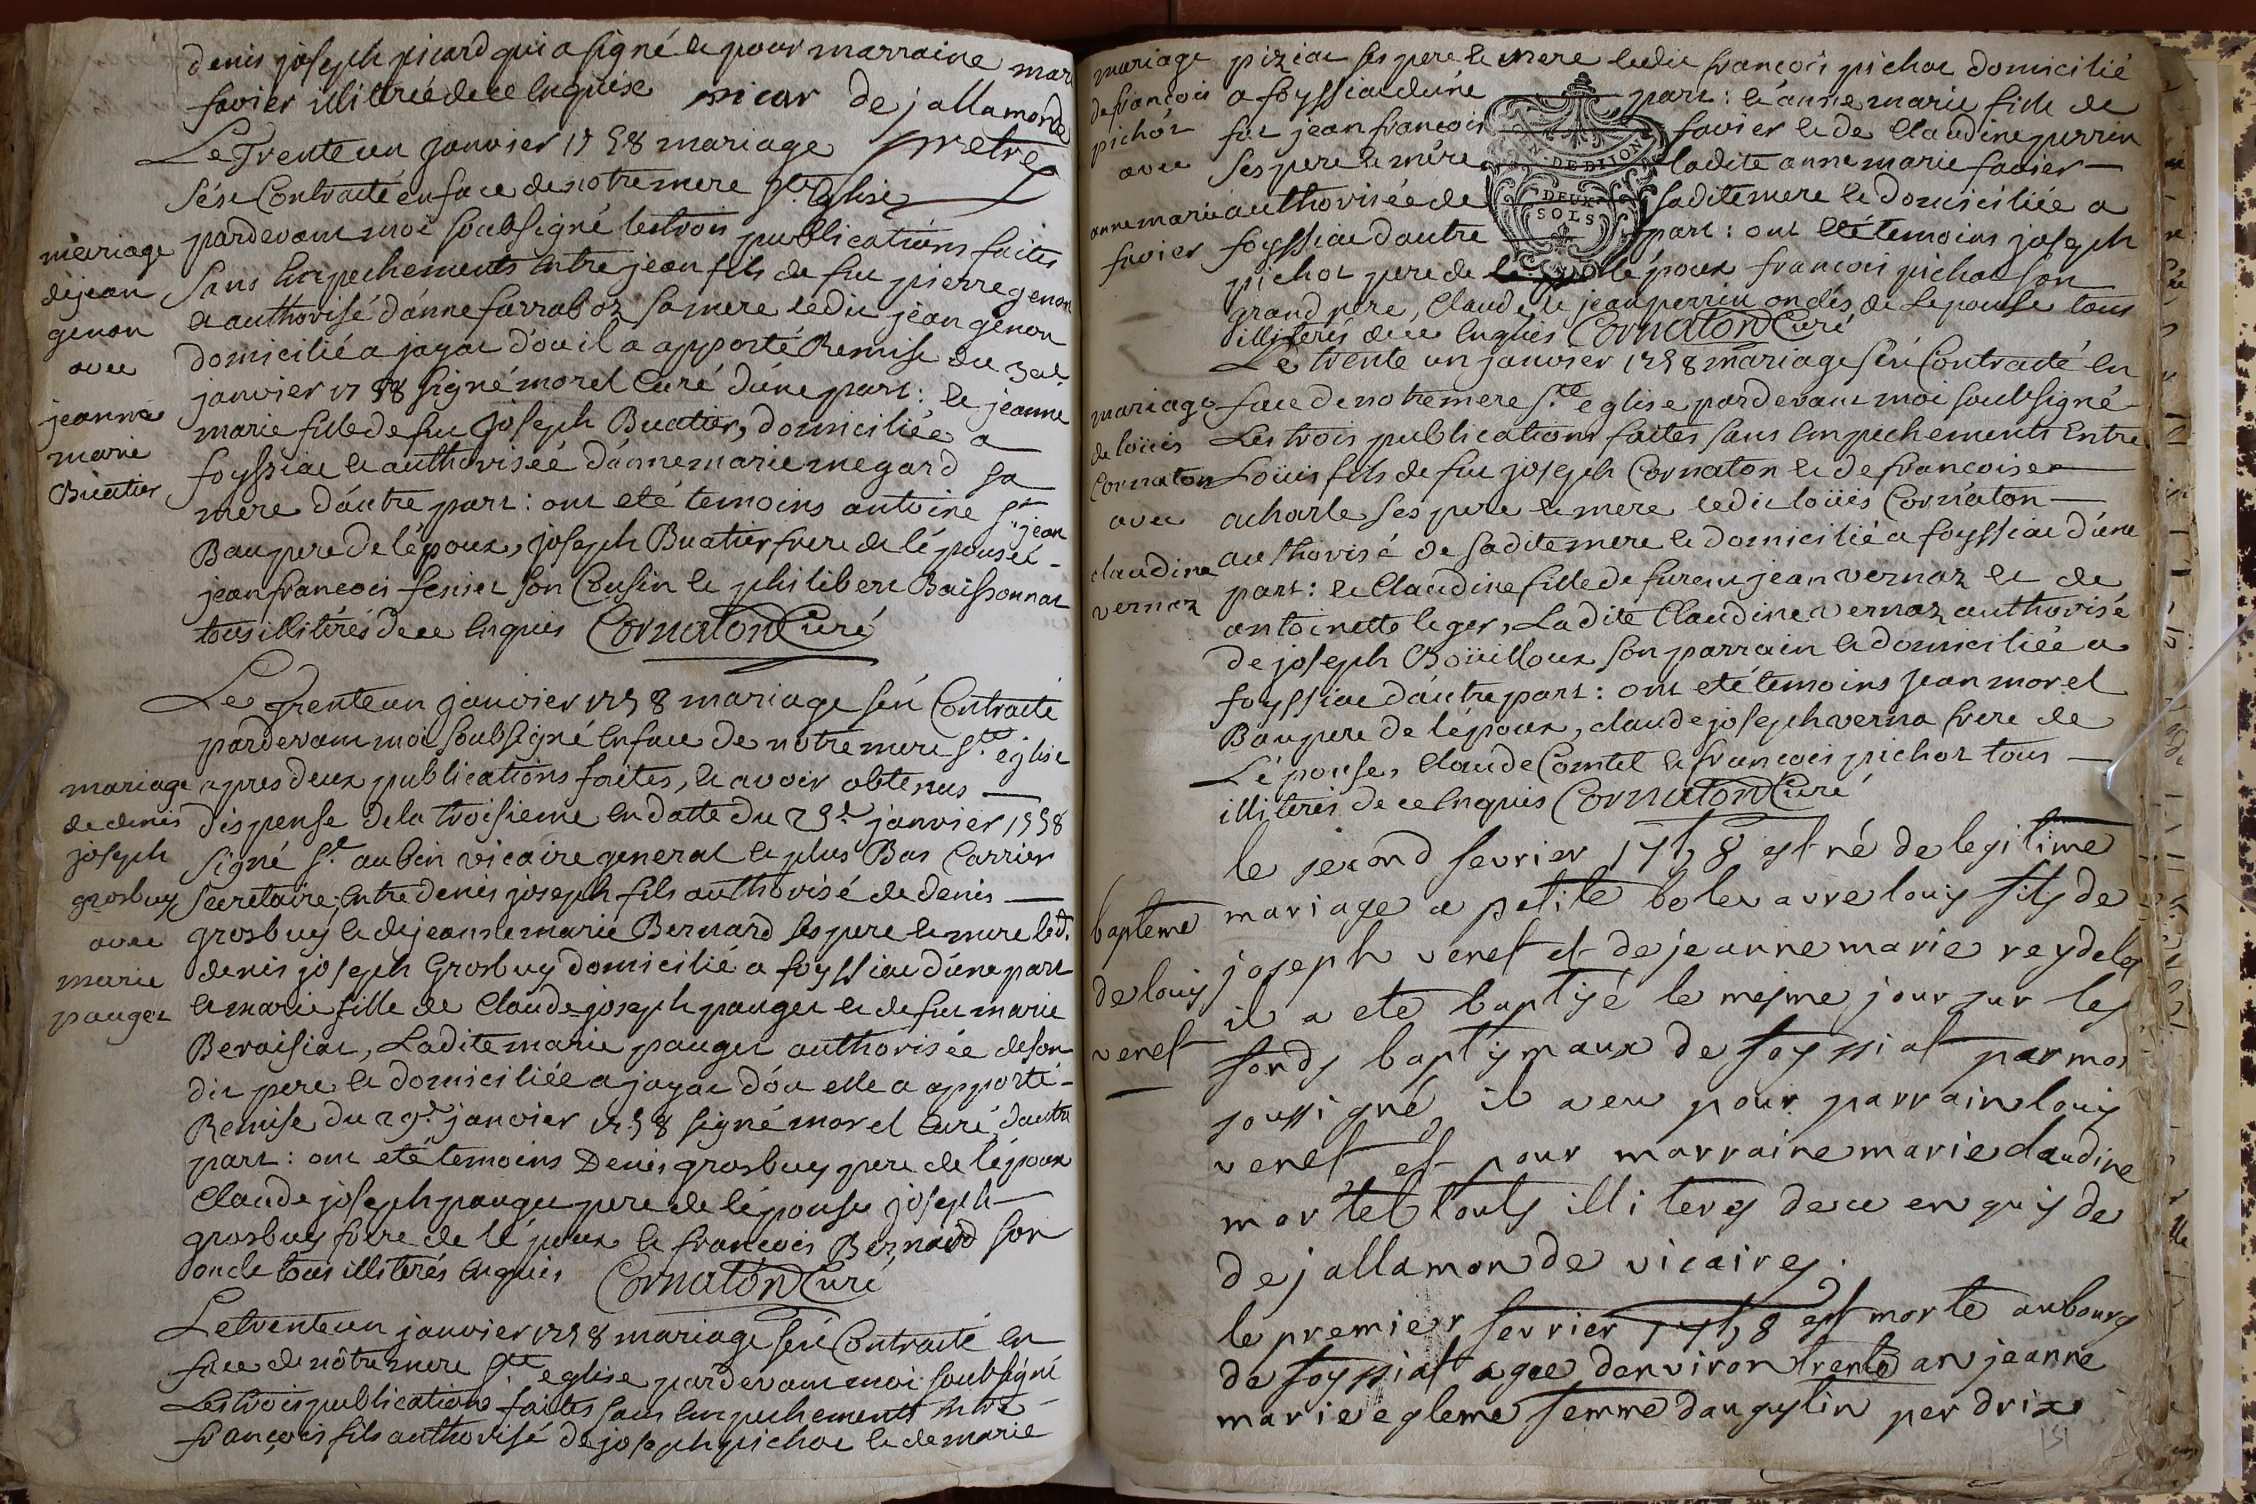 denis joseph picard qui a signé et pour marraine mar
favier illitérée de ce enquise picar de jallamonde
pretre
Le Trente un janvier 1758 mariage
s'ést Contracté en face de notre mere Ste Eglise
pardevant moi soubsigné les trois publications faites
sans Empechements entre jean fils de fut pierre genon
et authorisé d'anne farraboz sa mere ledit jean genon
domicilié a jayat d'ou il a apporté Remise du 30e
janvier 1758 signé morel Curé d'une part : et jeanne
marie fille de fut Joseph Buatier, domiciliée a
foyssiat et authorisée d'annemarie megard sa
mere d'autre part : ont eté temoins antoine St jean
Baupere de l'époux, joseph Buatier frere de l'épousée
jean francois son Cousin et philibert Boissonnat
tous illitérés de ce Enquis Cornaton Curé
mariage
de jean
genon
avec
jeanne
marie
Buatier
Le Trente un janvier 1758 mariage s'ést Contracté
pardevant moi soubsigné en face de notre mere Ste église
apres deux publications faites, et avoir obtenus
dispense de la troisieme en datte du janvier 1758
signé St aubin vicaire general et plus Bas Carrier
Secretaire; entre denis joseph fils authorisé de denis
grosbuy et de jeanne marie Bernard ses pere et mere led.
denis joseph Grosbuy domicilié a foyssiat d'une part
et marie fille de Claude joseph pauget et de fut marie
Beraisiat, Ladite marie pauget authorisée de son
dit pere et domiciliée a jayat d'ou elle a apporté
Remise du 29e janvier 1758 signé morel Curé d'autre
part : ont eté temoins Denis grosbuy pere de l'époux
Claude joseph pauget pere de l'épouse joseph
grosbuy frere de l'époux et francois Bernard son
oncle tous illitérés enquis Cornaton Curé
mariage
de denis
joseph
grosbuy
avec
marie
pauget
Le trente un janvier 1758 mariage s'ést Contracté en
face de nôtre mere Ste eglise pardevant moi soubsigné
Les trois publications faites sans Empechements entre
françois fils authorisé de joseph pichot et de marie
piziat ses pere et mere ledit françois pichot domicilié
a foyssiat d'une part : et anne marie fille de
fut jean françois favier et de Claudine perrin
ses pere et mere ladite anne marie favier
authorisée de sadite mere et domiciliée a
foyssiat d'autre part : ont eté temoins joseph
pichot pere de l'époux françois pichot son
grand pere, Claude et jean perrin oncles de Lepouse tous
illitérés de ce enquis Cornaton Curé
GEN. DE DIJON
DEUX
SOLS
mariage
de françois
pichot
avec
anne marie
favier
Le trente un janvier 1758 mariage s'ést Contracté en
face de notre mere Ste eglise pardevant moi soubsigné
Les trois publications faites sans Empechements Entre
Loüis fils de fut joseph Cornaton et de francoise
acharle ses pere et mere ledit loüis Cornaton
authorisé de sadite mere et domicilié a foyssiat d'une
part : et Claudine fille de jean vernaz et de
antoinette leger, Ladite Claudine vernaz authorisé
de joseph Boüilloux son parrain et domiciliée a
foyssiat d'autre part : ont eté temoins jean morel
Baupere de l'époux, claude joseph verna frere de
Lépouse, Claude Comtet et françois pichot tous
illiterés de ce Enquis Cornaton Curé
mariage
de loüis
Cornaton
avec
claudine
vernaz
le second fevrier 1758 est né de legitime
mariage a petite boulevavre louis fils de
joseph venet et de jeanne marie reydelet
il a ete baptisé le mesme jour sur les
fonds baptismaux de foyssiat par moi
soussigné, il a eu pour parrain louis
venet et pour marraine marie claudine
mortel touts illiteres de ce enquis de
dejallamonde vicaire.
bapteme
de louis
venet
le premier fevrier 1758 est morte au bourg
de foyssiat agee d'environ trente an jeanne
marie egleme femme d'augustin perdrix
151